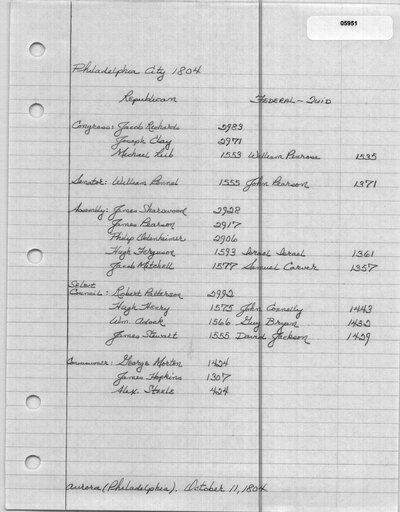 05951
Philadelphia City 1804
Republican Federal-Quid
Congress: Jacob Richards 2983
Joseph Clay 2971
Michael Leib 1553 William Penrose 1535
Senator: William Pennel 1555 John Pearson 1371
Assembly: James Sharswood 2928
James Pearson 2917
Philip Odenheimer 2906
Hugh Ferguson 1593 Israel Israel 1361
Jacob Mitchell 1577 Samuel Carver 1357
Select
Council: Robert Patterson 2992
Hugh Henry 1575 John Connelly 1443
Wm. 1566 Guy Bryan 1432
James Stewart 1555 David Jackson 1429
Commissioner: George Morton 1424
James Hopkins 1307
Alex. Steele 424
Aurora (Philadelphia). October 11, 1804